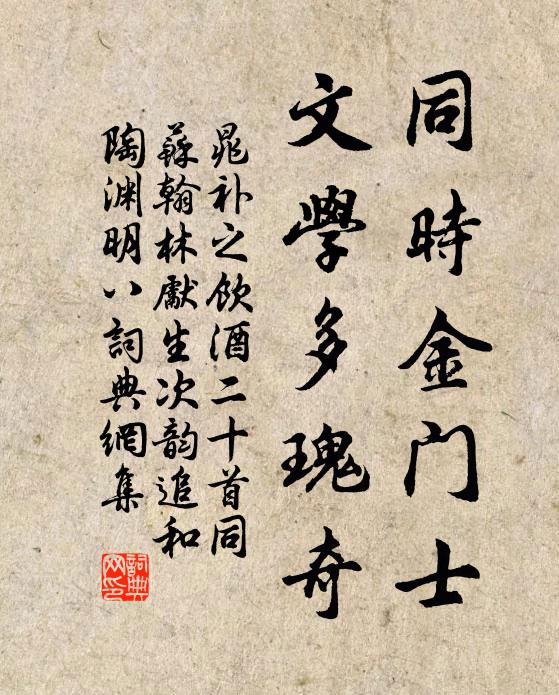 同時金门士
文學多瑰奇
晁补之飲酒二十首同
蘇翰林獻生次韵追和
陶渊明八詞典網集
詞典
网印